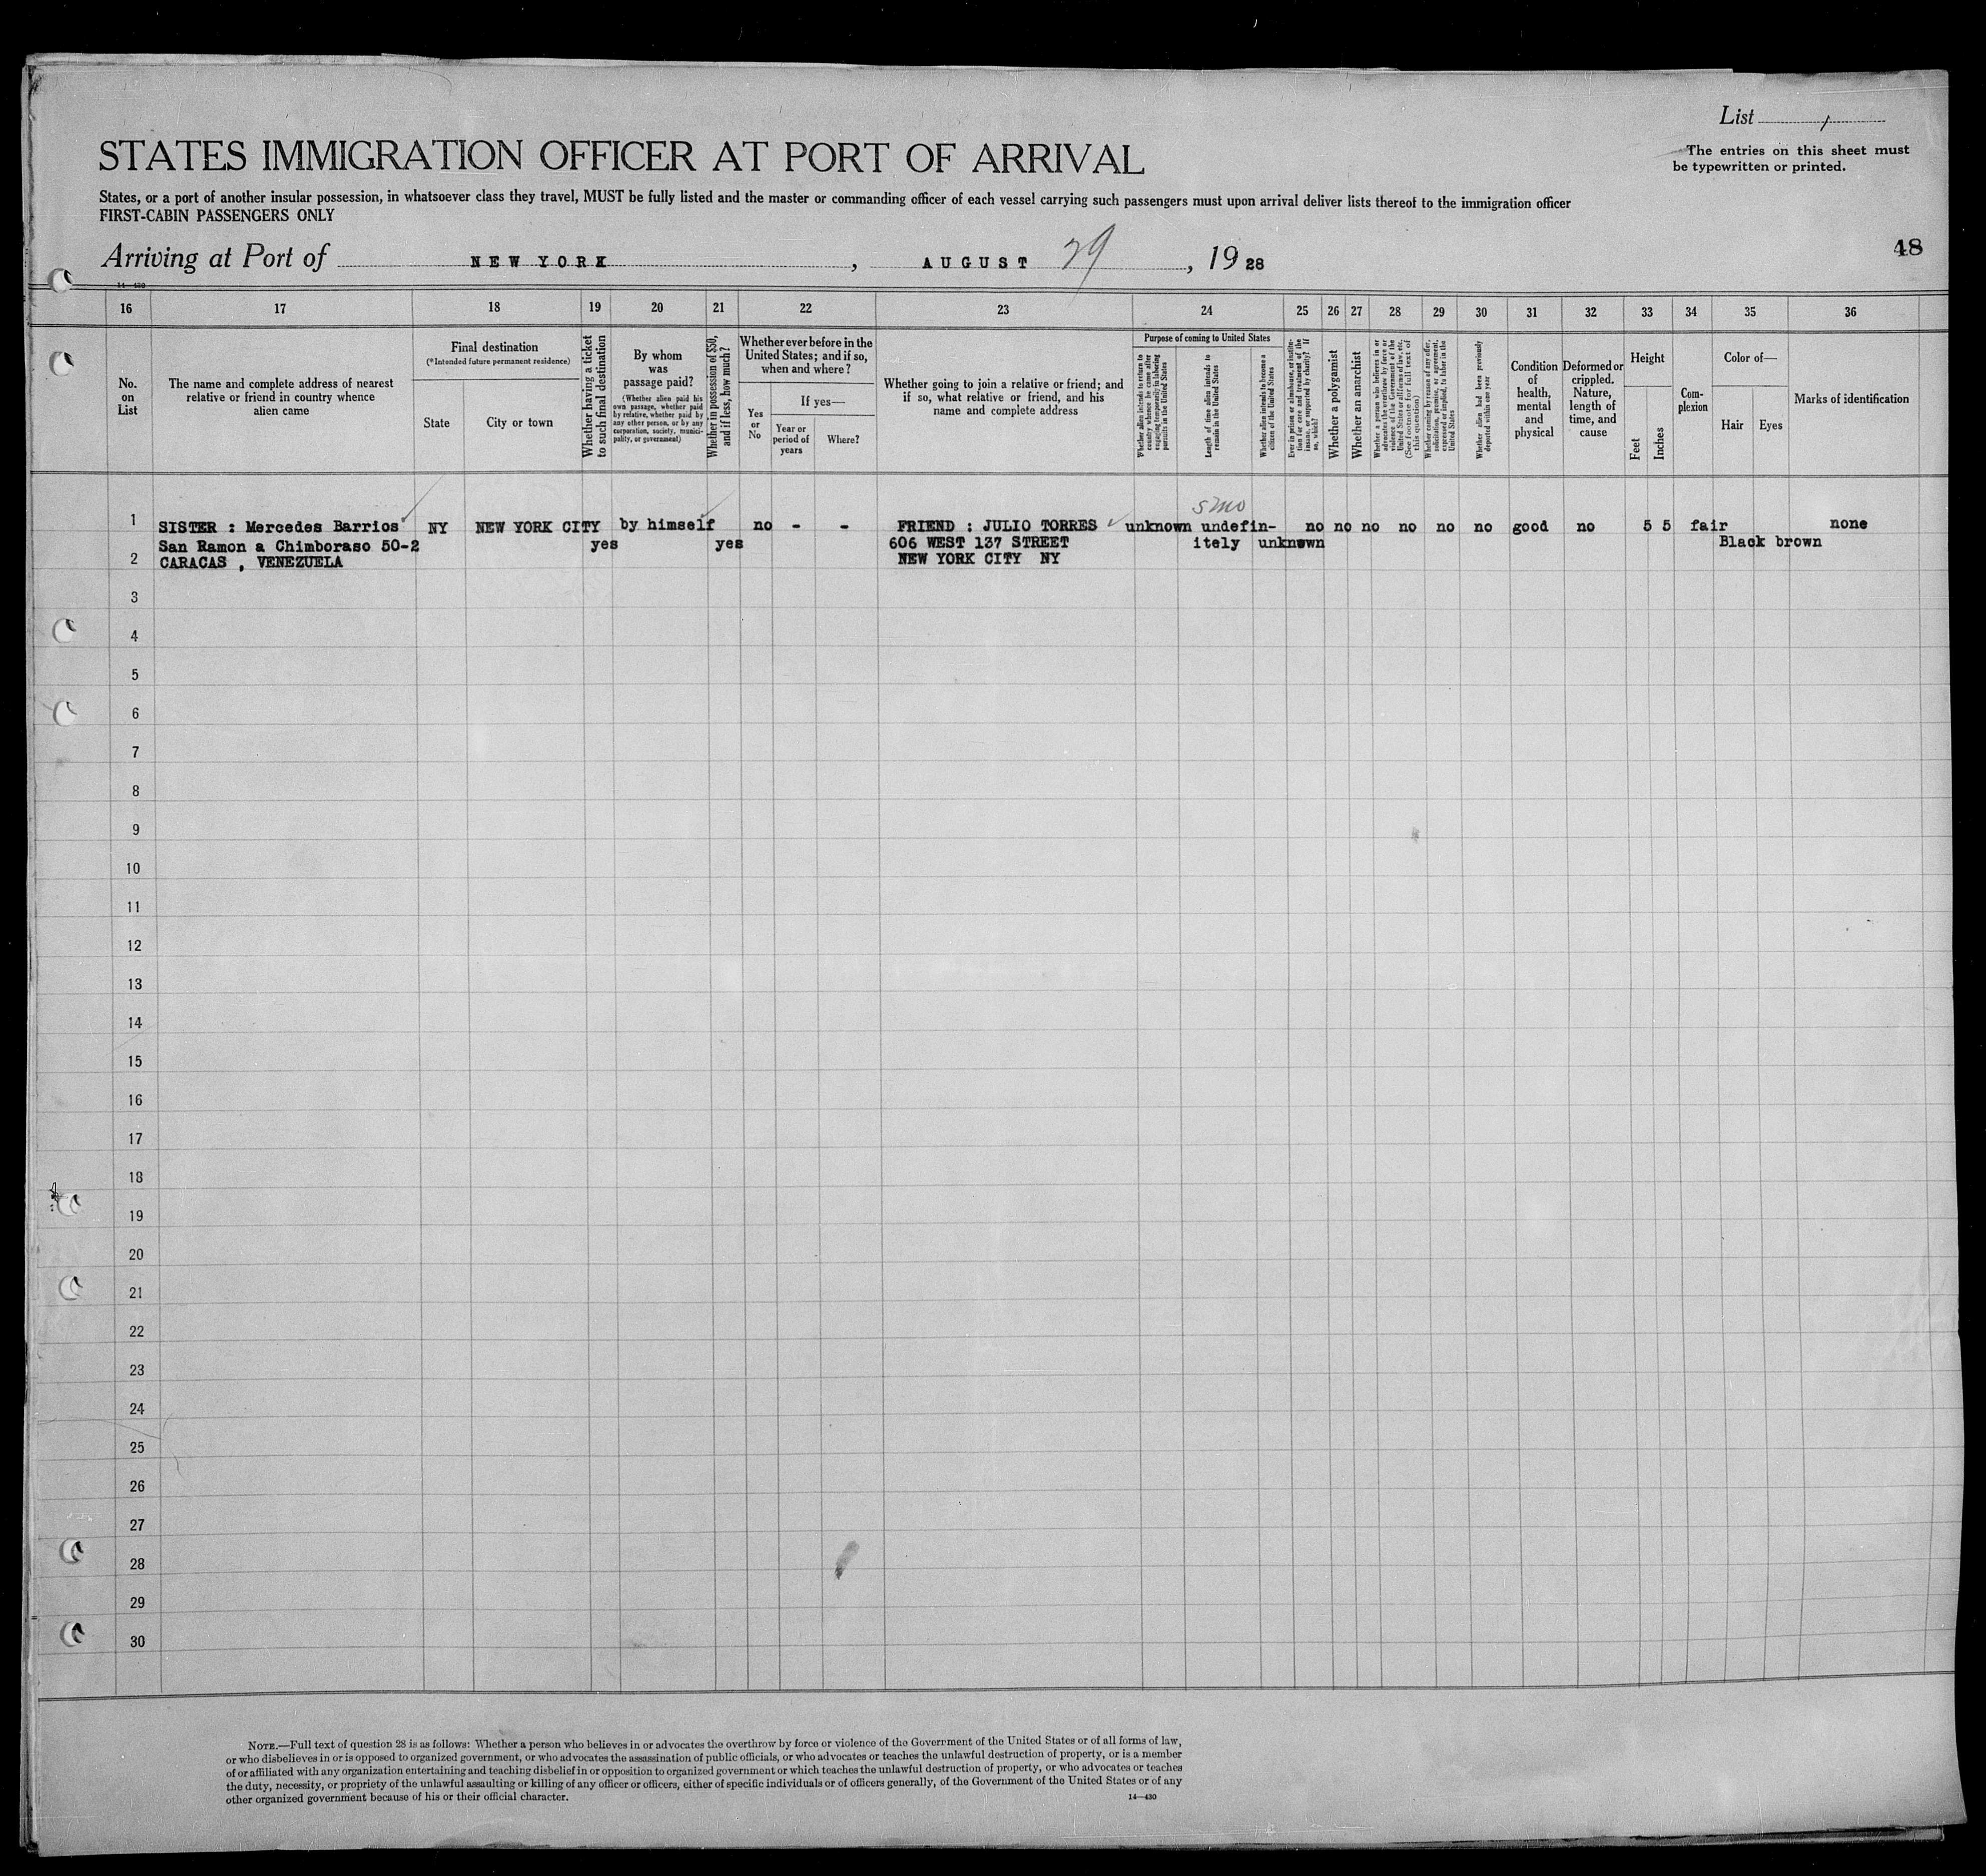 List 1
The entries on this sheet must
be typewritten or printed.
STATES IMMIGRATION OFFICER AT PORT OF ARRIVAL
States, or a port of another insular possession, in whatsoever class they travel, MUST be fully listed and the master or commanding officer of each vessel carrying such passengers must upon arrival deliver lists thereof to the immigration officer
FIRST-CABIN PASSENGERS ONLY
48
Arriving at Port of NEW YORK, AUGUST 29, 1928
14—430
16 17 18 19 20 21 22 23 24 25 26 27 28 29 30 31 32 33 34 35 36
No.
on
List
The name and complete address of nearest
relative or friend in country whence
alien came
Final destination
(*Intended future permanent residence)
State
City or town
Whether having a ticket
to such final destination
By whom
was
passage paid?
(Whether alien paid his
own passage, whether paid
by relative, whether paid by
any other person, or by any
corporation, society, munici-
pality, or government)
Whether in possession of $50,
and if less, how much?
Whether ever before in the
United States; and if so,
when and where?
Yes
or
No
If yes—
Year or
period of
years
Where?
Whether going to join a relative or friend; and
if so, what relative or friend, and his
name and complete address
Purpose of coming to United States
Whether alien intends to return to
country whence he came after
engaging temporarily in laboring
pursuits in the United States
Length of time alien intends to
remain in the United States
Whether alien intends to become a
citizen of the United States
Ever in prison or almshouse, or institu-
tion for care and treatment of the
insane, or supported by charity? If
so, which?
Whether a polygamist
Whether an anarchist
Whether a person who believes in or
advocates the overthrow by force or
violence of the Government of the
United States or all forms of law, etc.
(See footnote for full text of
this question)
Whether coming by reason of any offer,
solicitation, promise, or agreement,
expressed or implied, to labor in the
United States
Whether alien had been previously
deported within one year
Condition
of
health,
mental
and
physical
Deformed or
crippled.
Nature,
length of
time, and
cause
Height
Feet
Inches
Com-
plexion
Color of—
Hair
Eyes
Marks of identification
5 mo
1 SISTER : Mercedes Barrios NY NEW YORK CITY by himself no - - FRIEND : JULIO TORRES unknown undefin- no no no no no no good no 5 5 fair none
San Ramon a Chimboraso 50-2 yes yes 606 WEST 137 STREET itely unknown Black brown
2 CARACAS , VENEZUELA NEW YORK CITY NY
3
4
5
6
7
8
9
10
11
12
13
14
15
16
17
18
19
20
21
22
23
24
25
26
27
28
29
30
NOTE.—Full text of question 28 is as follows: Whether a person who believes in or advocates the overthrow by force or violence of the Government of the United States or of all forms of law,
or who disbelieves in or is opposed to organized government, or who advocates the assassination of public officials, or who advocates or teaches the unlawful destruction of property, or is a member
of or affiliated with any organization entertaining and teaching disbelief in or opposition to organized government or which teaches the unlawful destruction of property, or who advocates or teaches
the duty, necessity, or propriety of the unlawful assaulting or killing of any officer or officers, either of specific individuals or of officers generally, of the Government of the United States or of any
other organized government because of his or their official character.
14—430